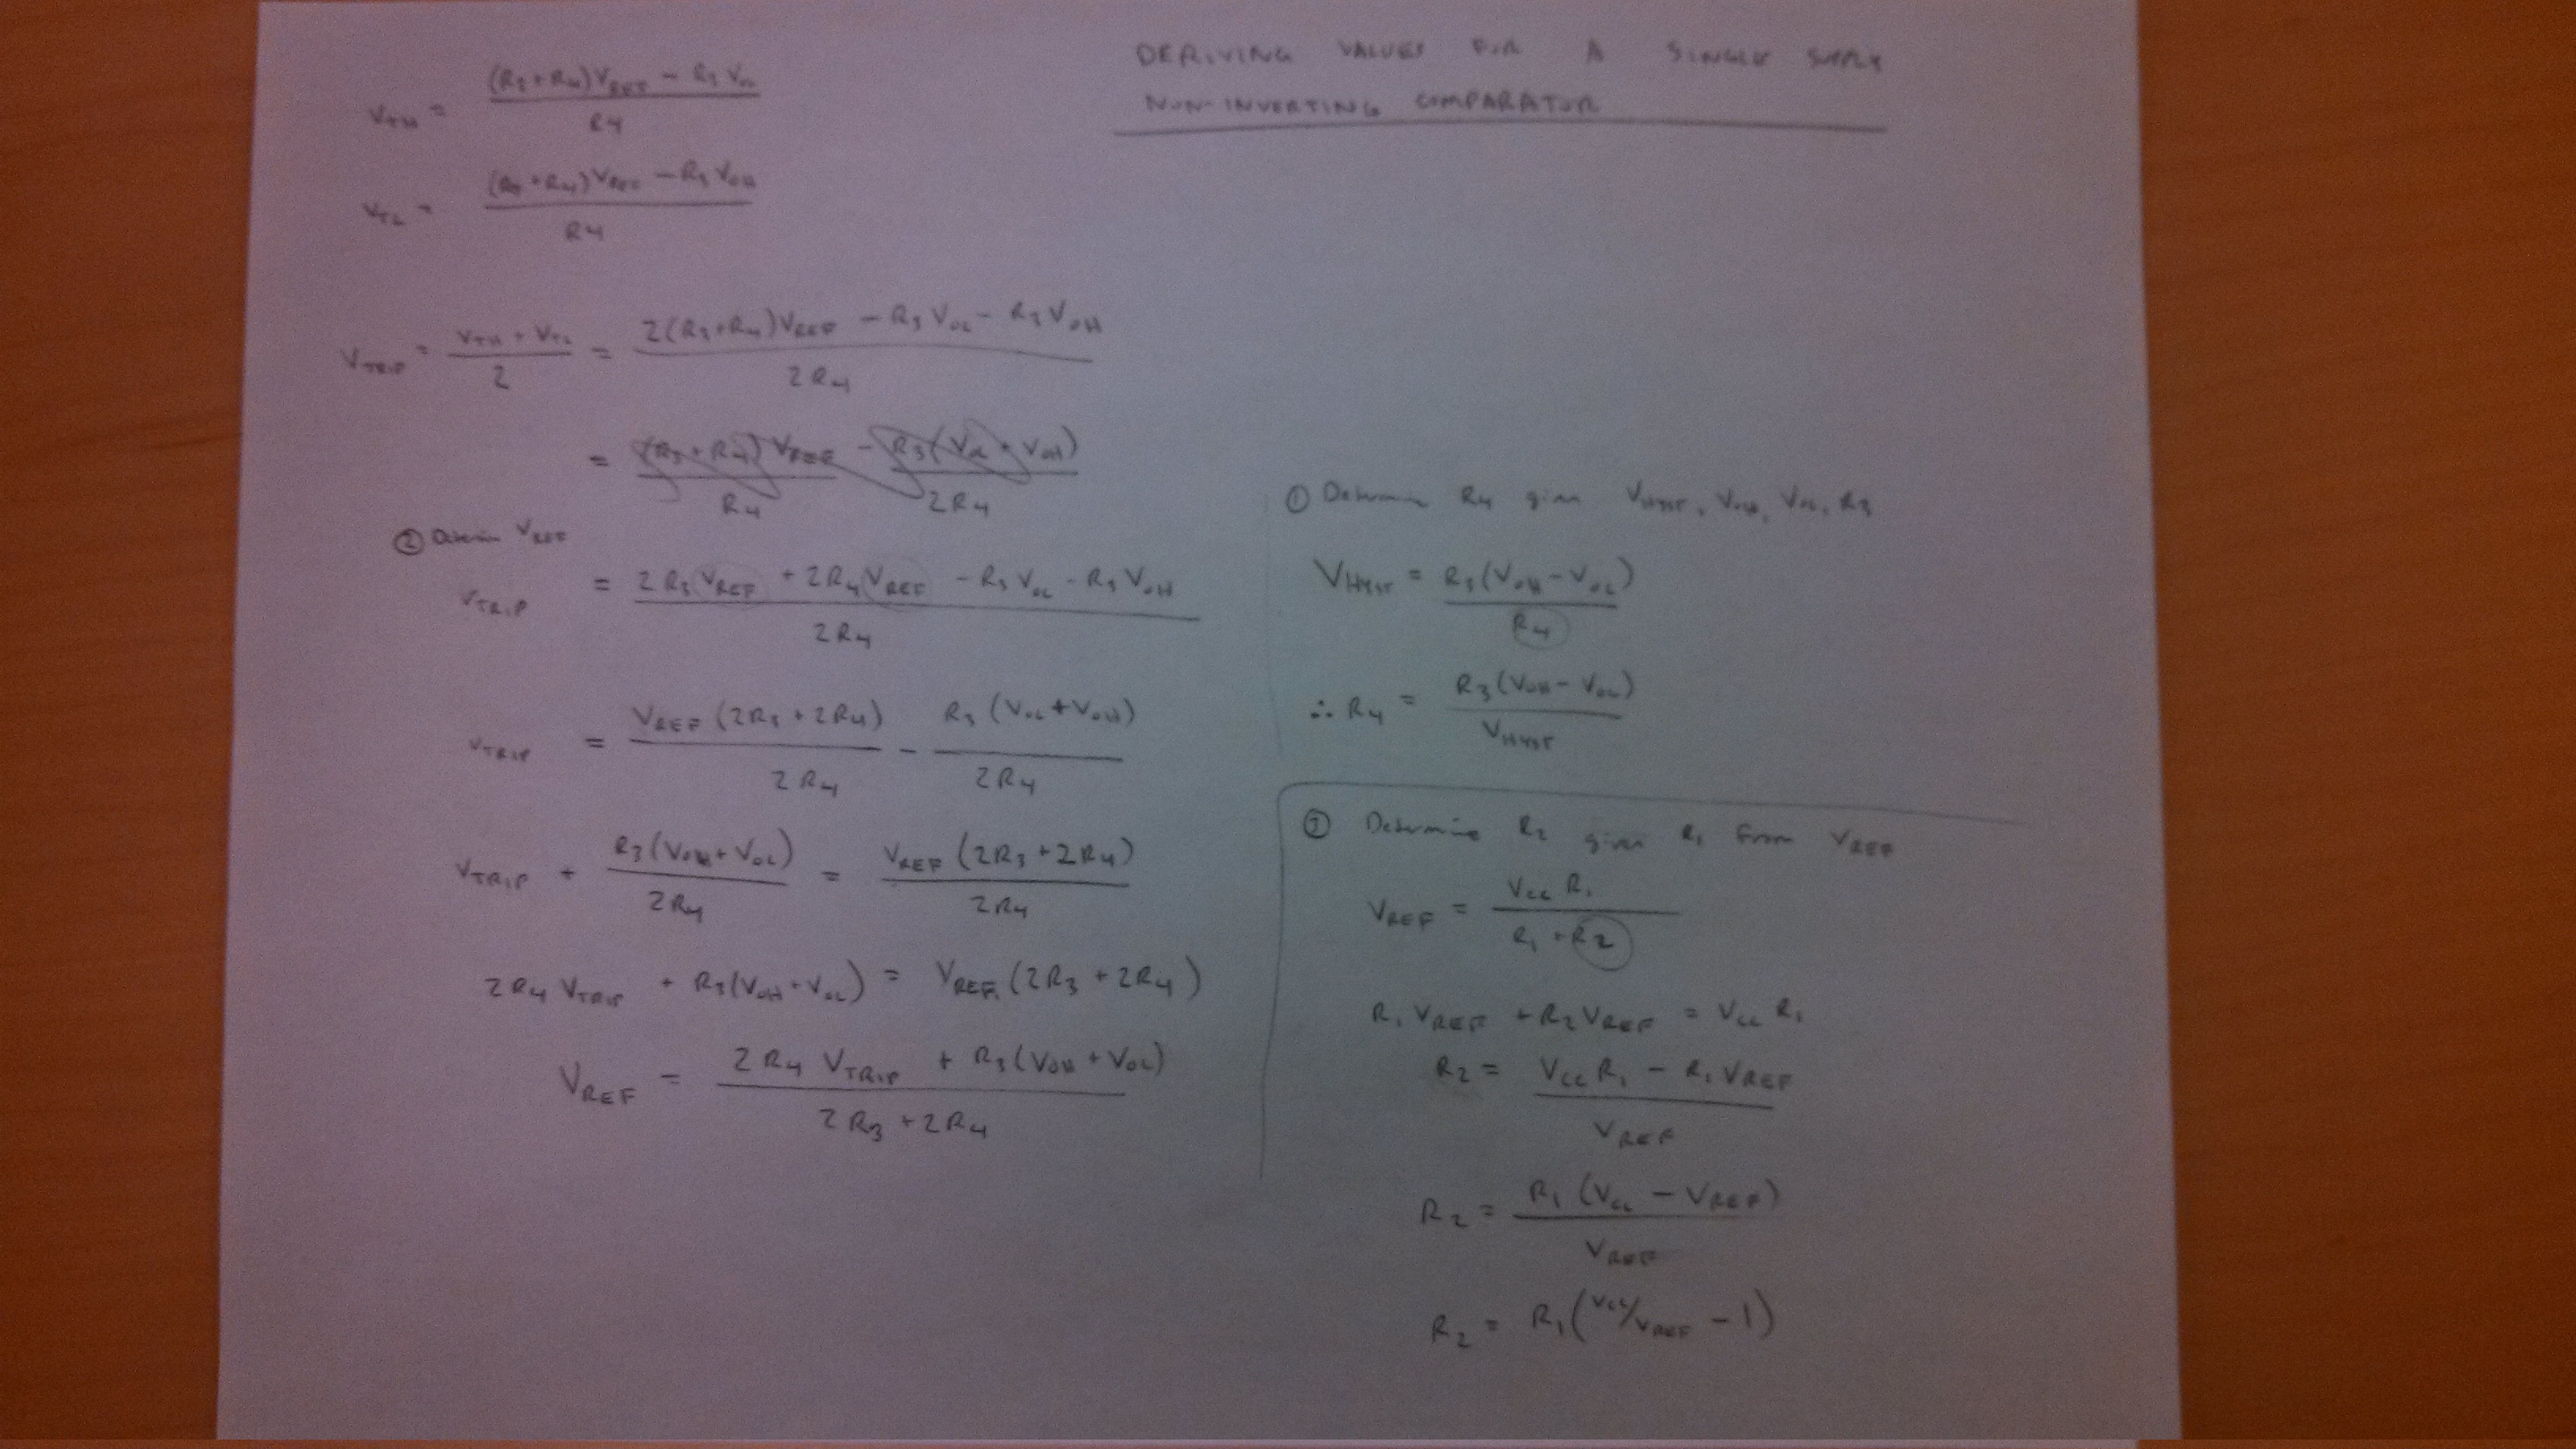 DERIVING VALUES FOR A SINGLE SUPPLY
NON-INVERTING COMPARATOR
V_TH = ((R3+R4)V_REF - R3 V_OL) / R4
V_TL = ((R3+R4)V_REF - R3 V_OH) / R4
V_TRIP = (V_TH + V_TL) / 2 = (2(R3+R4)V_REF - R3 V_OL - R3 V_OH) / 2R4
= (R3+R4)V_REF / R4 - R3(V_OL + V_OH) / 2R4
② Determine V_REF
V_TRIP = (2R3 V_REF + 2R4 V_REF - R3 V_OL - R3 V_OH) / 2R4
V_TRIP = V_REF (2R3 + 2R4) / 2R4 - R3 (V_OL + V_OH) / 2R4
V_TRIP + R3(V_OH + V_OL) / 2R4 = V_REF (2R3 + 2R4) / 2R4
2R4 V_TRIP + R3(V_OH + V_OL) = V_REF (2R3 + 2R4)
V_REF = (2R4 V_TRIP + R3(V_OH + V_OL)) / (2R3 + 2R4)
① Determine R4 given V_HYST, V_OH, V_OL, R3
V_HYST = R3(V_OH - V_OL) / R4
∴ R4 = R3(V_OH - V_OL) / V_HYST
③ Determine R2 given R1 from V_REF
V_REF = V_CC R1 / (R1 + R2)
R1 V_REF + R2 V_REF = V_CC R1
R2 = (V_CC R1 - R1 V_REF) / V_REF
R2 = R1 (V_CC - V_REF) / V_REF
R2 = R1 (V_CC/V_REF - 1)